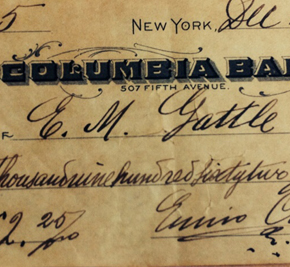 5 NEW YORK, Dec
COLUMBIA BA
507 FIFTH AVENUE.
R E. M. Gattle
thousand nine hundred sixty two
2. 25/00 Enrico C